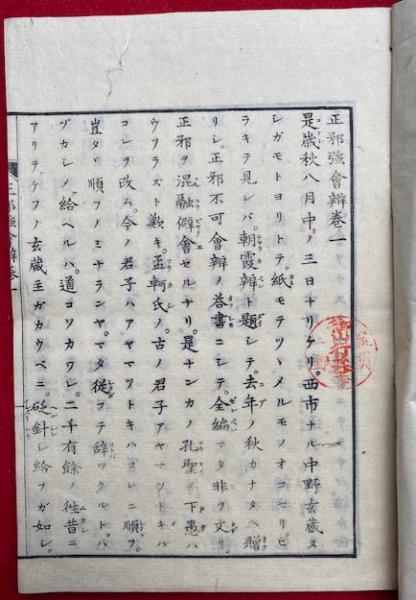 正邪強會辨卷一
是歳秋八月中ノ三日ナリケリ。西市ナル中野玄蔵ヌ
シガモトヨリトテ。紙モテツヽメルモノオコセリ。ヒ
ラキテ見レバ。朝霞辨ト題シテ。去年ノ秋カナタヘ贈
リシ。正邪不可會辨ノ荅書ニシテ。全編マタ非ヲ文リ。
正邪ヲ混融僻會セルナリ。是ナンカノ孔聖ノ下愚ハ
ウツラズト歎キ。孟軻氏ノ古ノ君子アヤマツトキハ
コレヲ改ム。今ノ君子ハアヤマツトキハコレニ順フ。
豈タヾ順フノミナランヤ。マタ從ツテ辞ヲツクルト。ハ
ヅカシメ給ヘルハ。道コソカワレ。二千有餘ノ徃昔ニ
アリテ。ケフノ玄蔵主ガカウベニ。砭針シ給フガ如シ。
正邪強會辨卷一